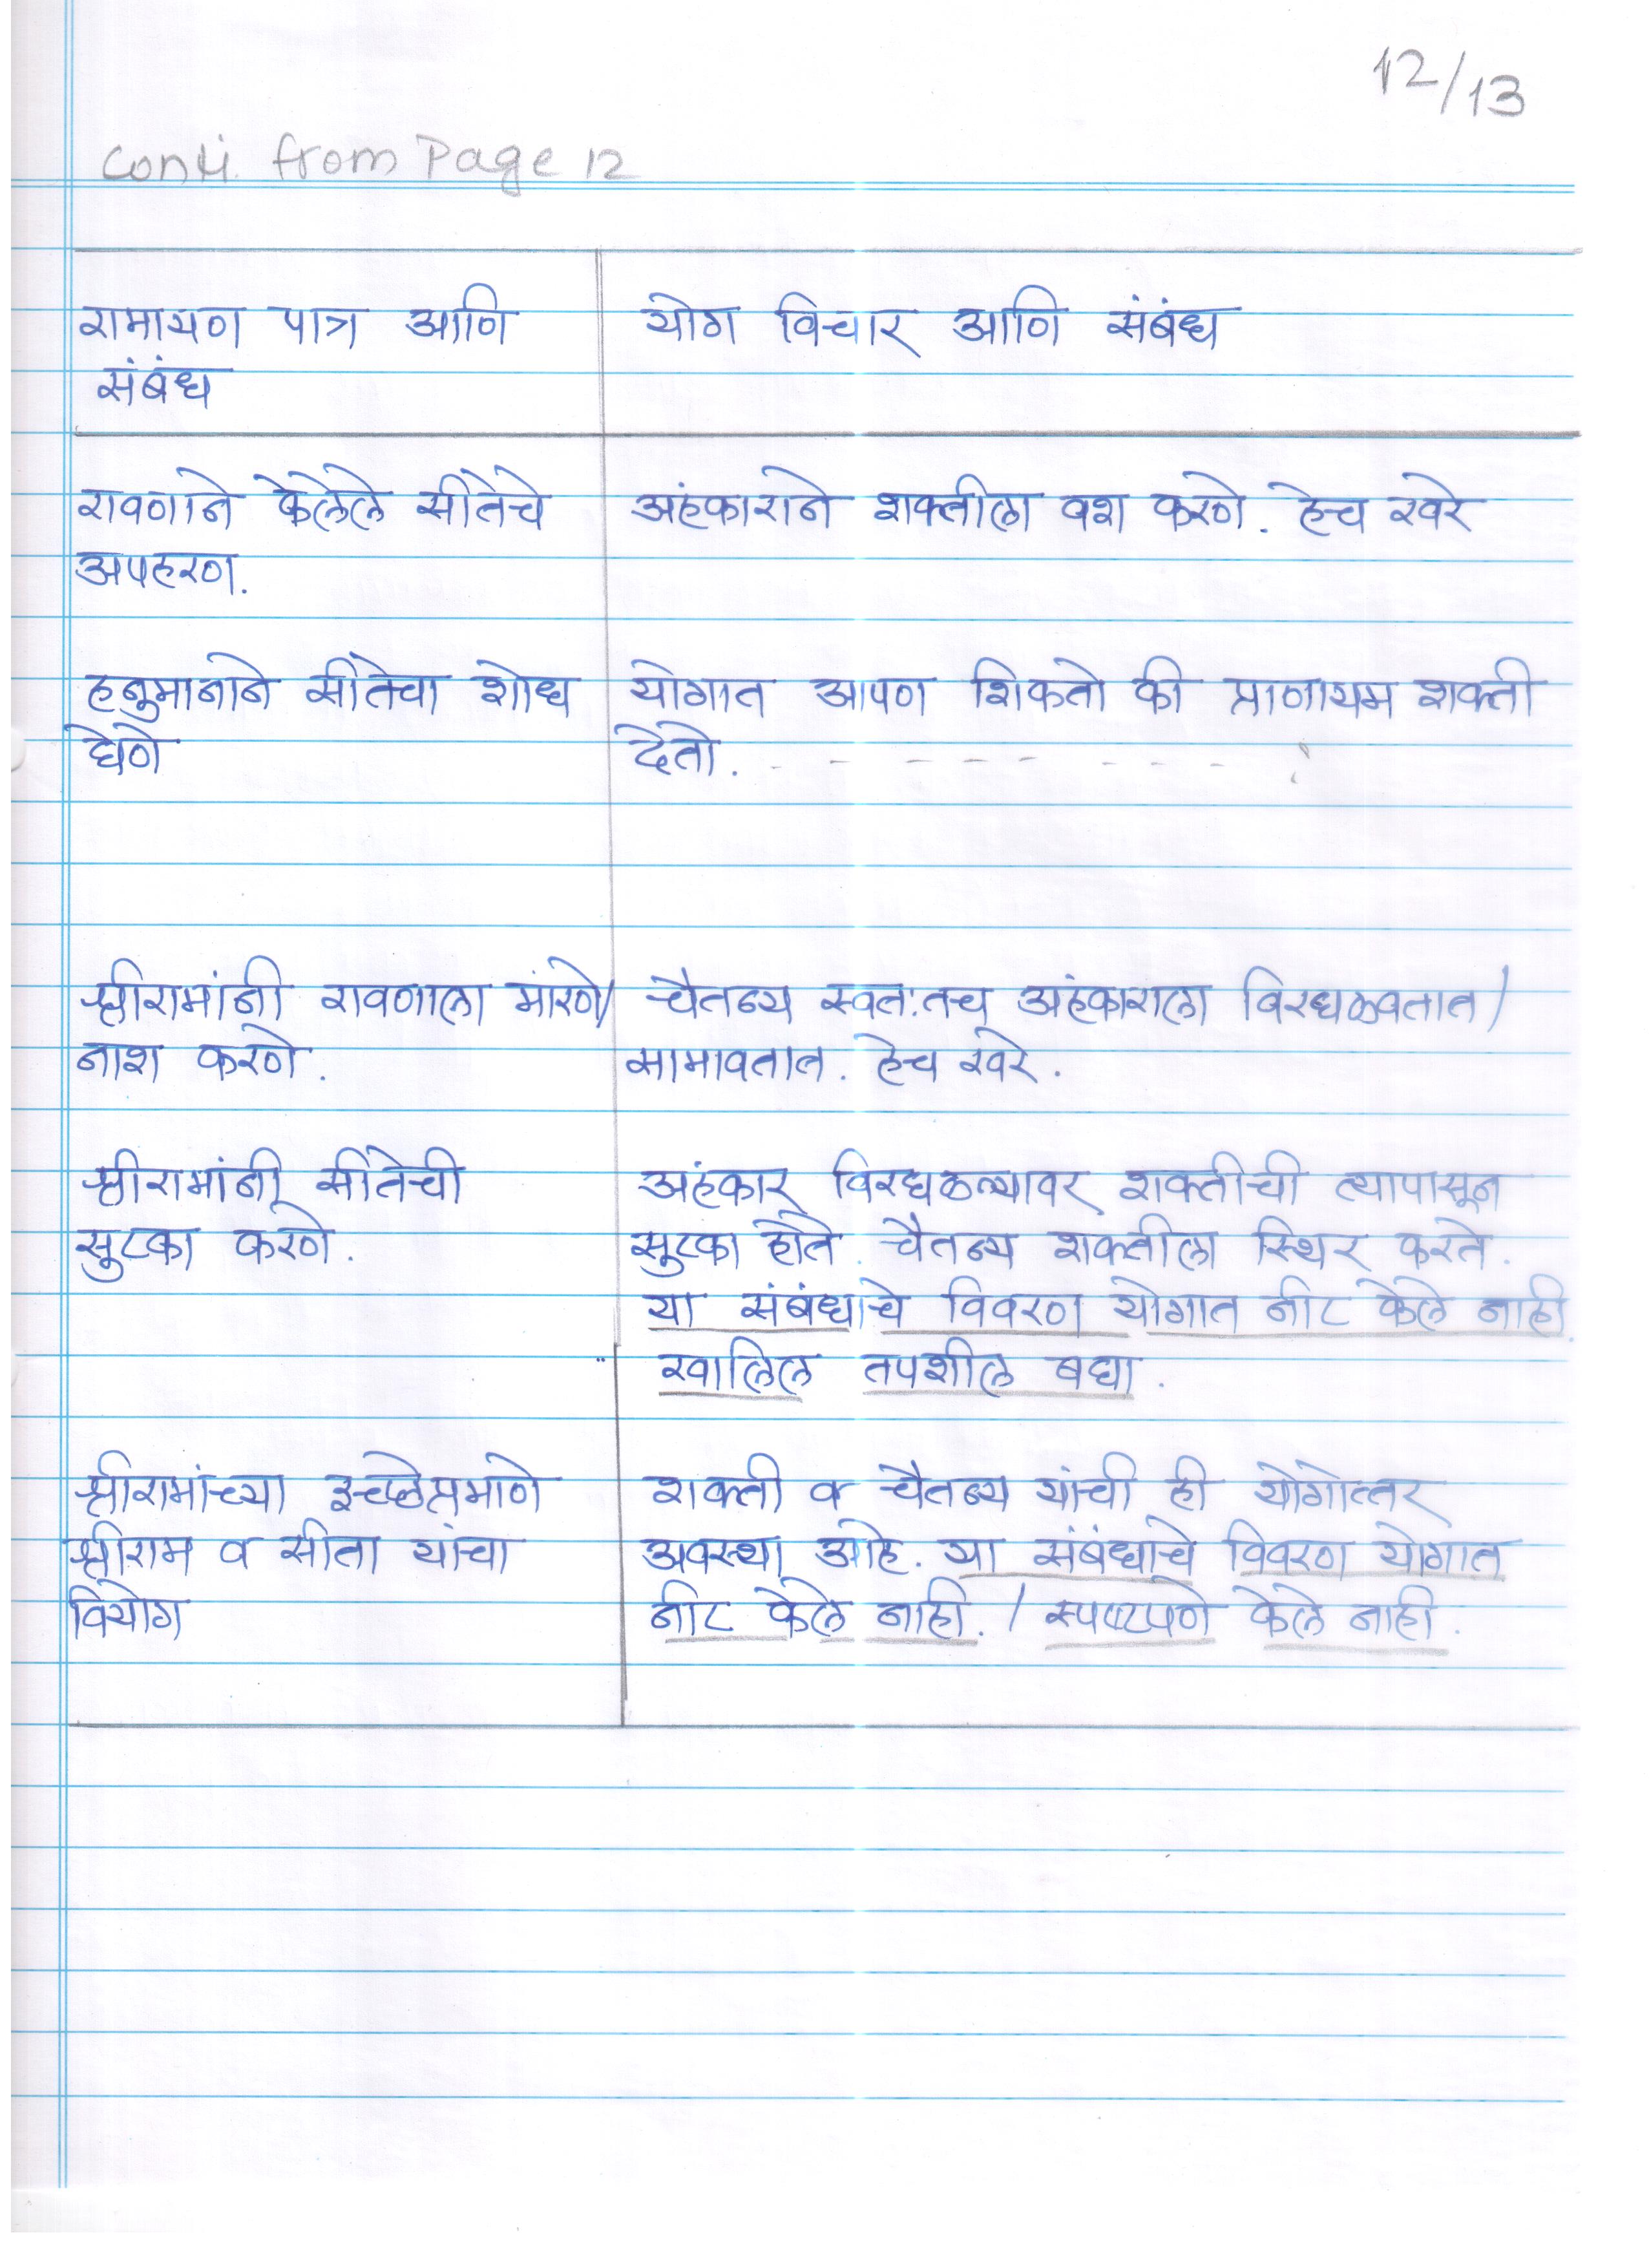 12/13
Conti. from Page 12
रामायण पात्र आणि
संबंध
योग विचार आणि संबंध
रावणाने केलेले सीतेचे
अपहरण.
अहंकाराने शक्तीला वश करणे. हेच खरे
हनुमानाने सीतेचा शोध
घेणे
योगात आपण शिकतो की प्राणायम शक्ती
देतो. - - - - - - - -
श्रीरामांनी रावणाला मारणे/
नाश करणे.
चैतन्य स्वतःतच अहंकाराला विरघळवतात/
सामावतात. हेच खरे.
श्रीरामांनी सीतेची
सुटका करणे.
अहंकार विरघळल्यावर शक्तीची त्यापासून
सुटका होते. चैतन्य शक्तीला स्थिर करते.
या संबंधाचे विवरण योगात नीट केले नाही.
खालिल तपशील बघा.
श्रीरामांच्या इच्छेप्रमाणे
श्रीराम व सीता यांचा
वियोग
शक्ती व चैतन्य यांची ही योगोत्तर
अवस्था आहे. या संबंधाचे विवरण योगात
नीट केले नाही. / स्पष्टपणे केले नाही.